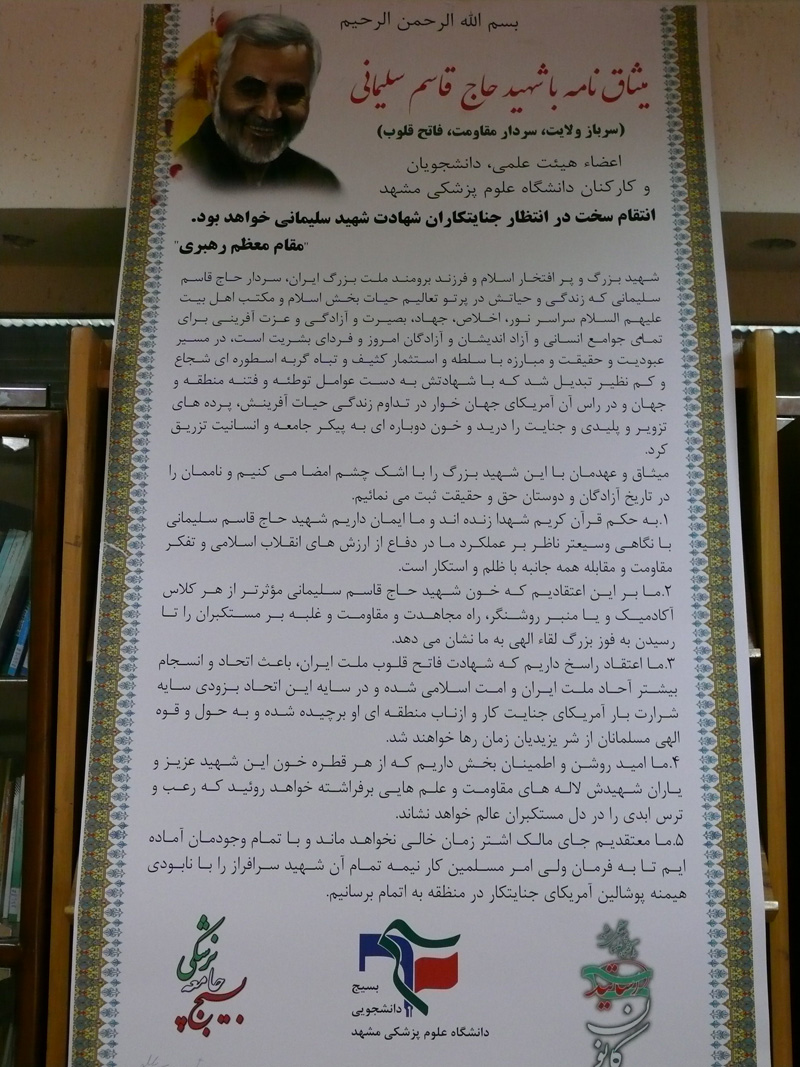 بسم الله الرحمن الرحیم
میثاق نامه با شهید حاج قاسم سلیمانی
(سرباز ولایت، سردار مقاومت، فاتح قلوب)
اعضاء هیئت علمی، دانشجویان
و کارکنان دانشگاه علوم پزشکی مشهد
انتقام سخت در انتظار جنایتکاران شهادت شهید سلیمانی خواهد بود.
"مقام معظم رهبری"
شهید بزرگ و پر افتخار اسلام و فرزند برومند ملت بزرگ ایران، سردار حاج قاسم
سلیمانی که زندگی و حیاتش در پرتو تعالیم حیات بخش اسلام و مکتب اهل بیت
علیهم السلام سراسر نور، اخلاص، جهاد، بصیرت و آزادگی و عزت آفرینی برای
تمامی جوامع انسانی و آزاد اندیشان و آزادگان امروز و فردای بشریت است، در مسیر
عبودیت و حقیقت و مبارزه با سلطه و استثمار کثیف و تباه گربه اسطوره ای شجاع
و کم نظیر تبدیل شد که با شهادتش به دست عوامل توطئه و فتنه منطقه و
جهان و در راس آن آمریکای جهان خوار در تداوم زندگی حیات آفرینش، پرده های
تزویر و پلیدی و جنایت را درید و خون دوباره ای به پیکر جامعه و انسانیت تزریق
کرد.
میثاق و عهدمان با این شهید بزرگ را با اشک چشم امضا می کنیم و ناممان را
در تاریخ آزادگان و دوستان حق و حقیقت ثبت می نمائیم.
۱.به حکم قرآن کریم شهدا زنده اند و ما ایمان داریم شهید حاج قاسم سلیمانی
با نگاهی وسیعتر ناظر بر عملکرد ما در دفاع از ارزش های انقلاب اسلامی و تفکر
مقاومت و مقابله همه جانبه با ظلم و استکار است.
۲.ما بر این اعتقادیم که خون شهید حاج قاسم سلیمانی مؤثرتر از هر کلاس
آکادمیک و یا منبر روشنگر، راه مجاهدت و مقاومت و غلبه بر مستکبران را تا
رسیدن به فوز بزرگ لقاء الهی به ما نشان می دهد.
۳.ما اعتقاد راسخ داریم که شهادت فاتح قلوب ملت ایران، باعث اتحاد و انسجام
بیشتر آحاد ملت ایران و امت اسلامی شده و در سایه این اتحاد بزودی سایه
شرارت بار آمریکای جنایت کار و ازناب منطقه ای او برچیده شده و به حول و قوه
الهی مسلمانان از شر یزیدیان زمان رها خواهند شد.
۴.ما امید روشن و اطمینان بخش داریم که از هر قطره خون این شهید عزیز و
یاران شهیدش لاله های مقاومت و علم هایی برفراشته خواهد روئید که رعب و
ترس ابدی را در دل مستکبران عالم خواهد نشاند.
۵.ما معتقدیم جای مالک اشتر زمان خالی نخواهد ماند و با تمام وجودمان آماده
ایم تا به فرمان ولی امر مسلمین کار نیمه تمام آن شهید سرافراز را با نابودی
هیمنه پوشالین آمریکای جنایتکار در منظقه به اتمام برسانیم.
بسیج
دانشجویی
دانشگاه علوم پزشکی مشهد
بسیج جامعه پزشکی
کانون
اساتید